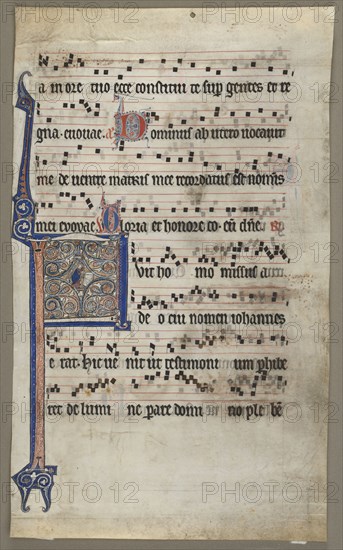 PHOTO12 PHOTO12 PHOTO12
a in ore tuo ecce constitui te sup gentes et re
gna. euouae. a Dominus ab utero uocauit
me de uentre matris mee recordatus est nominis
mei euouae Gloria et honore co. eū dñe.
uit ho mo missus a
de o cui nomen iohannes
e rat. hic ue nit ut testimoni um phibe
ret de lumi ne parare domi no ple bē